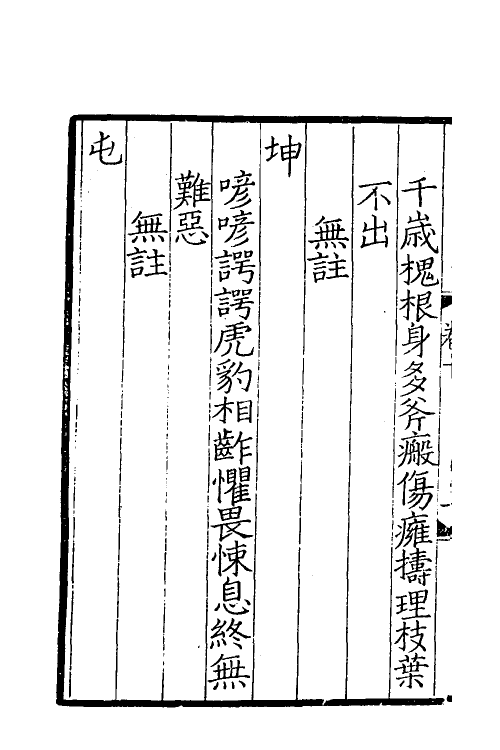 千歲槐根身多斧瘢傷癰擣理枝葉
不出
無註
坤
喭喭諤諤虎豹相齚懼畏悚息終無
難惡
無註
屯